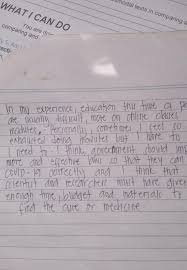 WHAT I CAN DO
You are
comparing and
texts in comparing
In my experience, education this time of
are usually difficult, more on online classes
modules. Personally, sometimes I feel so
exhausted doing modules but I have to
I need to. I think, government should
more and effective so that they can
covid-19 correctly and I think that
scientist and researchers must have given
enough time, budget and materials to
find the cure or medicine.